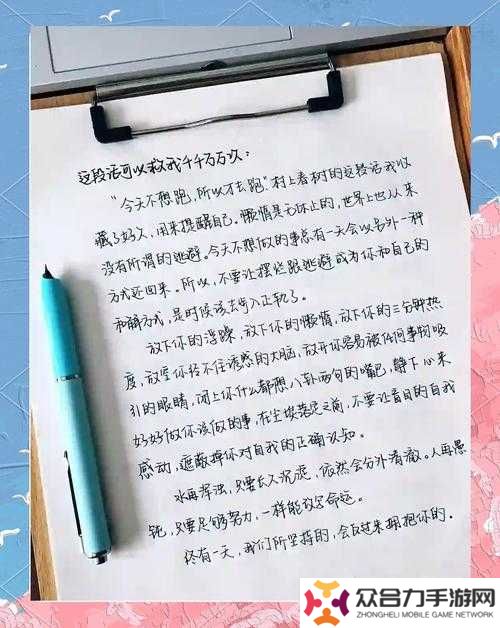 这段话可以救我千千万万次:
“今天不想跑,所以才去跑”村上春树的这段话我收
藏了好久,用来提醒自己。懒惰是无休止的,世界上也从来
没有所谓的逃避。今天不想做的事总有一天会以另外一种
方式还回来。所以,不要让摆烂跟逃避成为你和自己的
和解方式,是时候该去步入正轨了。
放下你的浮躁,放下你的懒惰,放下你的三分钟热
度,放空你经不住诱惑的大脑,放开你容易被任何事物吸
引的眼睛,闭上你什么都想八卦两句的嘴巴,静下心来
好好做你该做的事,在尘埃落定之前,不要让盲目的自我
感动,遮蔽掉你对自我的正确认知。
水再浑浊,只要长久沉淀,依然会分外清澈。人再愚
钝,只要足够努力,一样能改写命运。
终有一天,我们所坚持的,会反过来拥抱你的。
众合力手游网
ZHONGHELI MOBILE GAME NETWORK